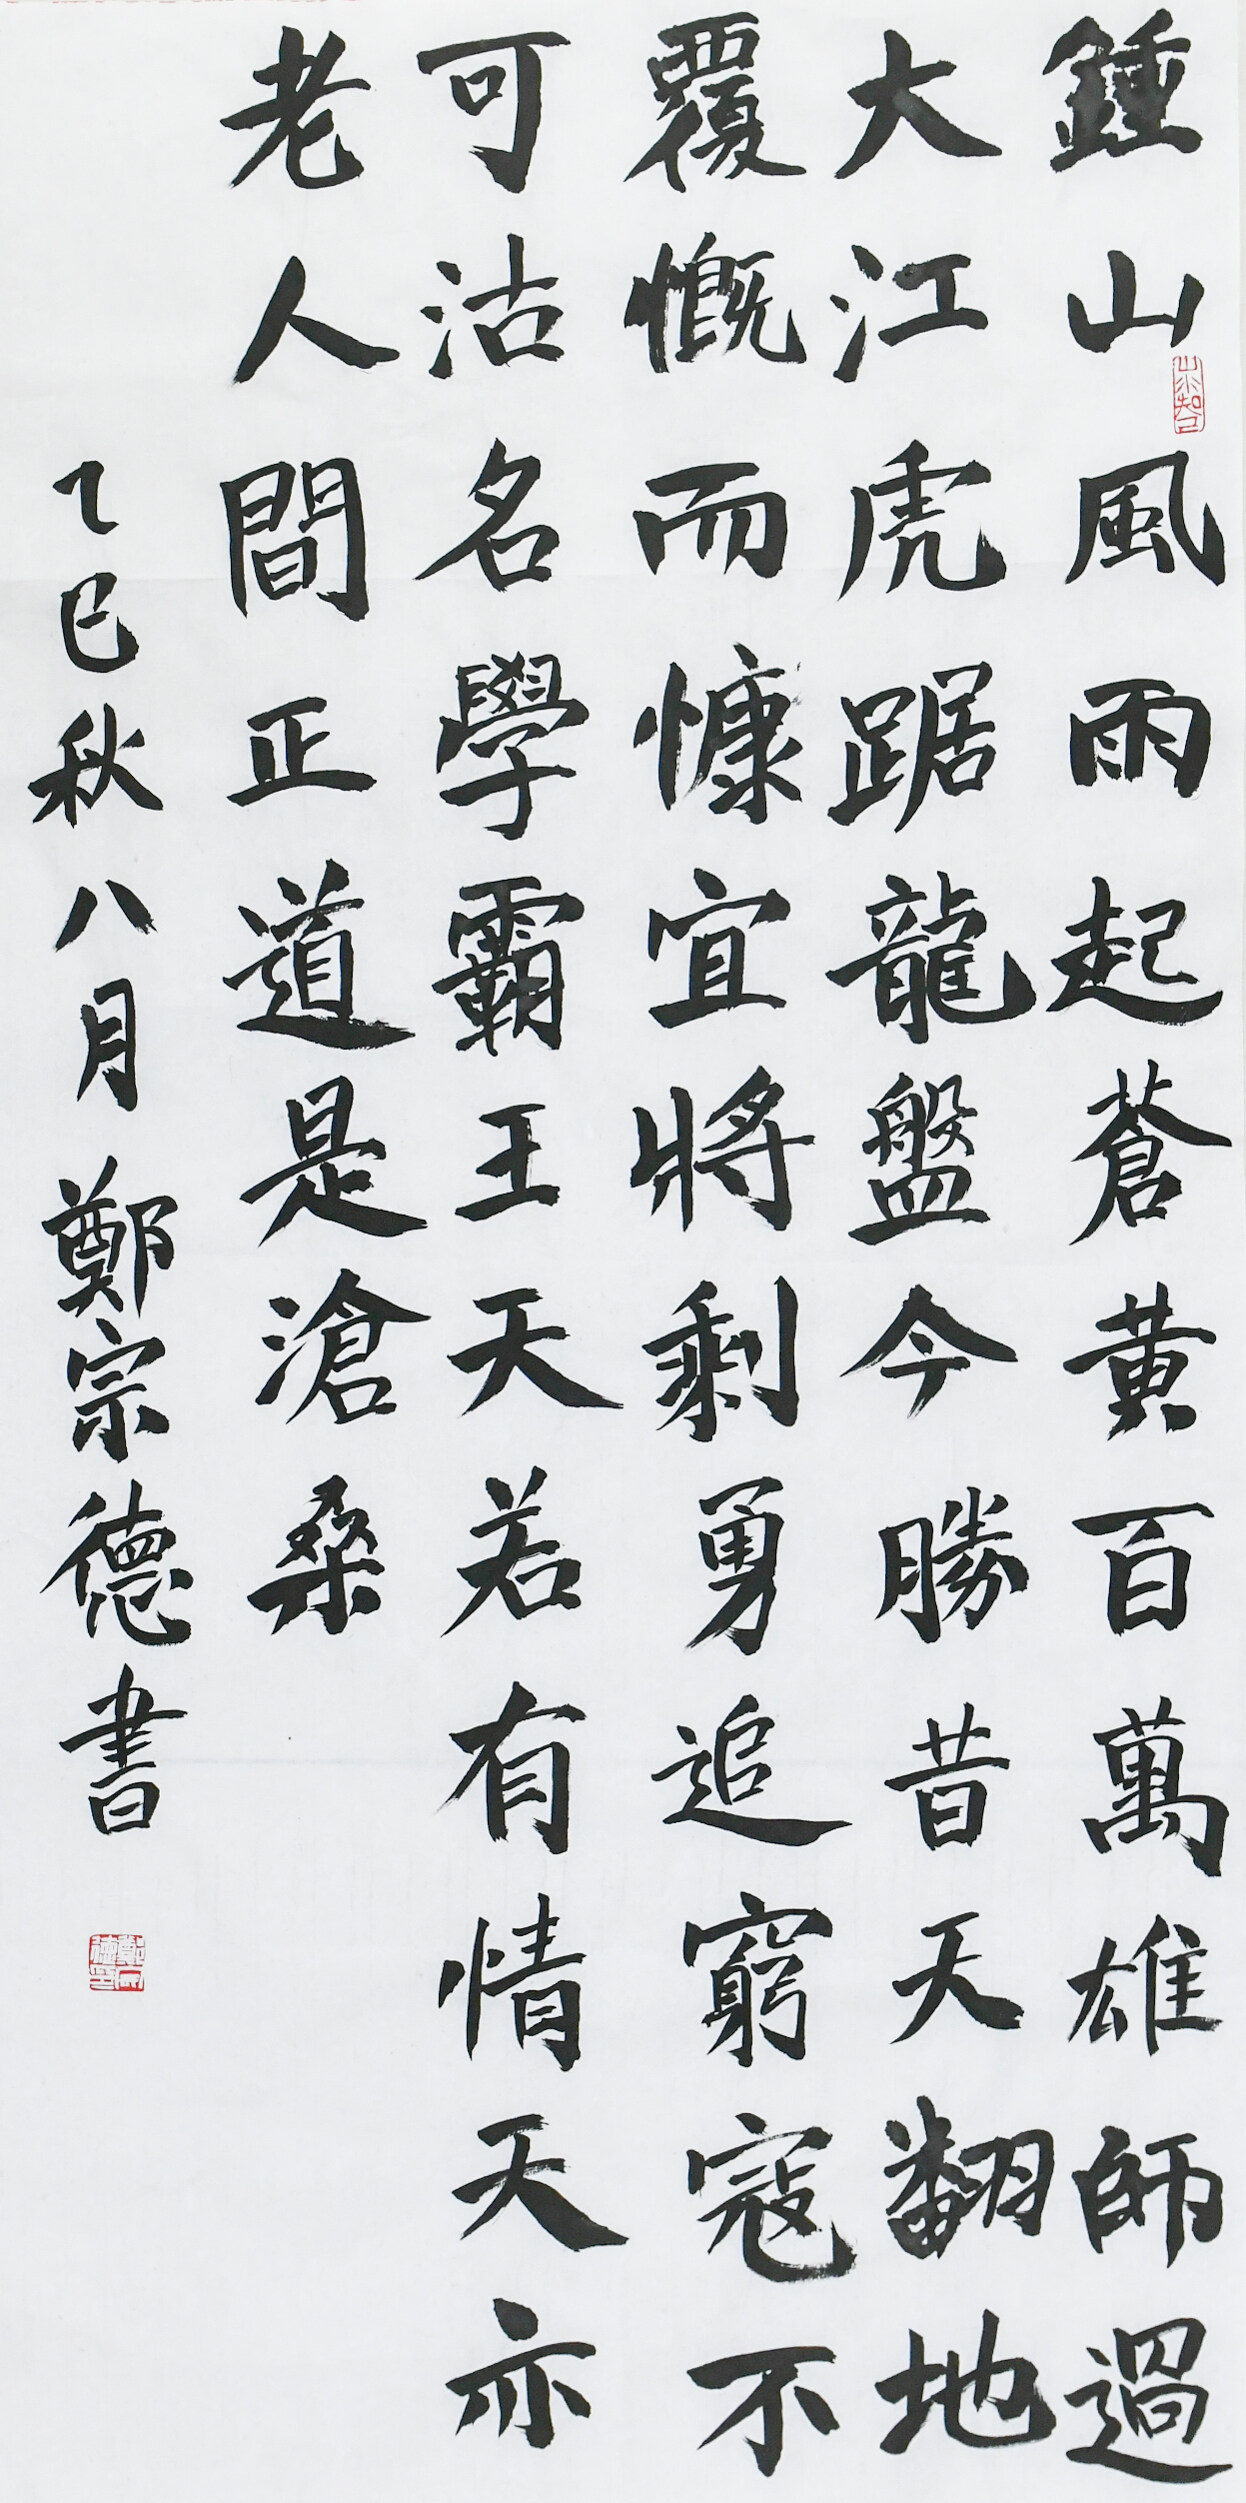 鍾山風雨起蒼黄百萬雄師過
大江虎踞龍盤今勝昔天翻地
覆慨而慷宜將剩勇追窮寇不
可沽名學霸王天若有情天亦
老人間正道是滄桑
乙巳秋八月鄭宗德書